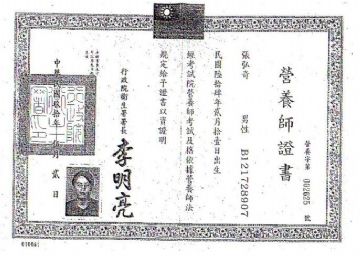 營養師證書
營養字第 002625 號
張弘奇 男性 B121728907
民國陸拾肆年貳月拾壹日出生
經考試院營養師考試及格依據營養師法
規定給予證書以資證明
行政院衛生署署長 李明亮
中華民國 拾年 月 貳日